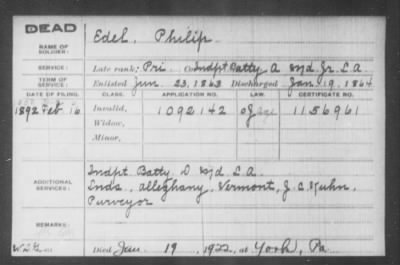 DEAD
NAME OF SOLDIER: Edel, Philip
SERVICE: Late rank, Pri. Co. Indpt Batty A Md. Lt. L.A.
TERM OF SERVICE: Enlisted Jun. 23, 1863 Discharged Jan. 19, 1864
DATE OF FILING. CLASS. APPLICATION NO. LAW. CERTIFICATE NO.
1892 Feb. 16 Invalid, 1092142 1156961
Widow,
Minor,
ADDITIONAL SERVICES: Indpt Batty. D Md. L.A.
Inds, Alleghany, Vermont, J. C. Kuhn,
Purveyor
REMARKS:
Died Jan. 19, 1922, at York, Pa.